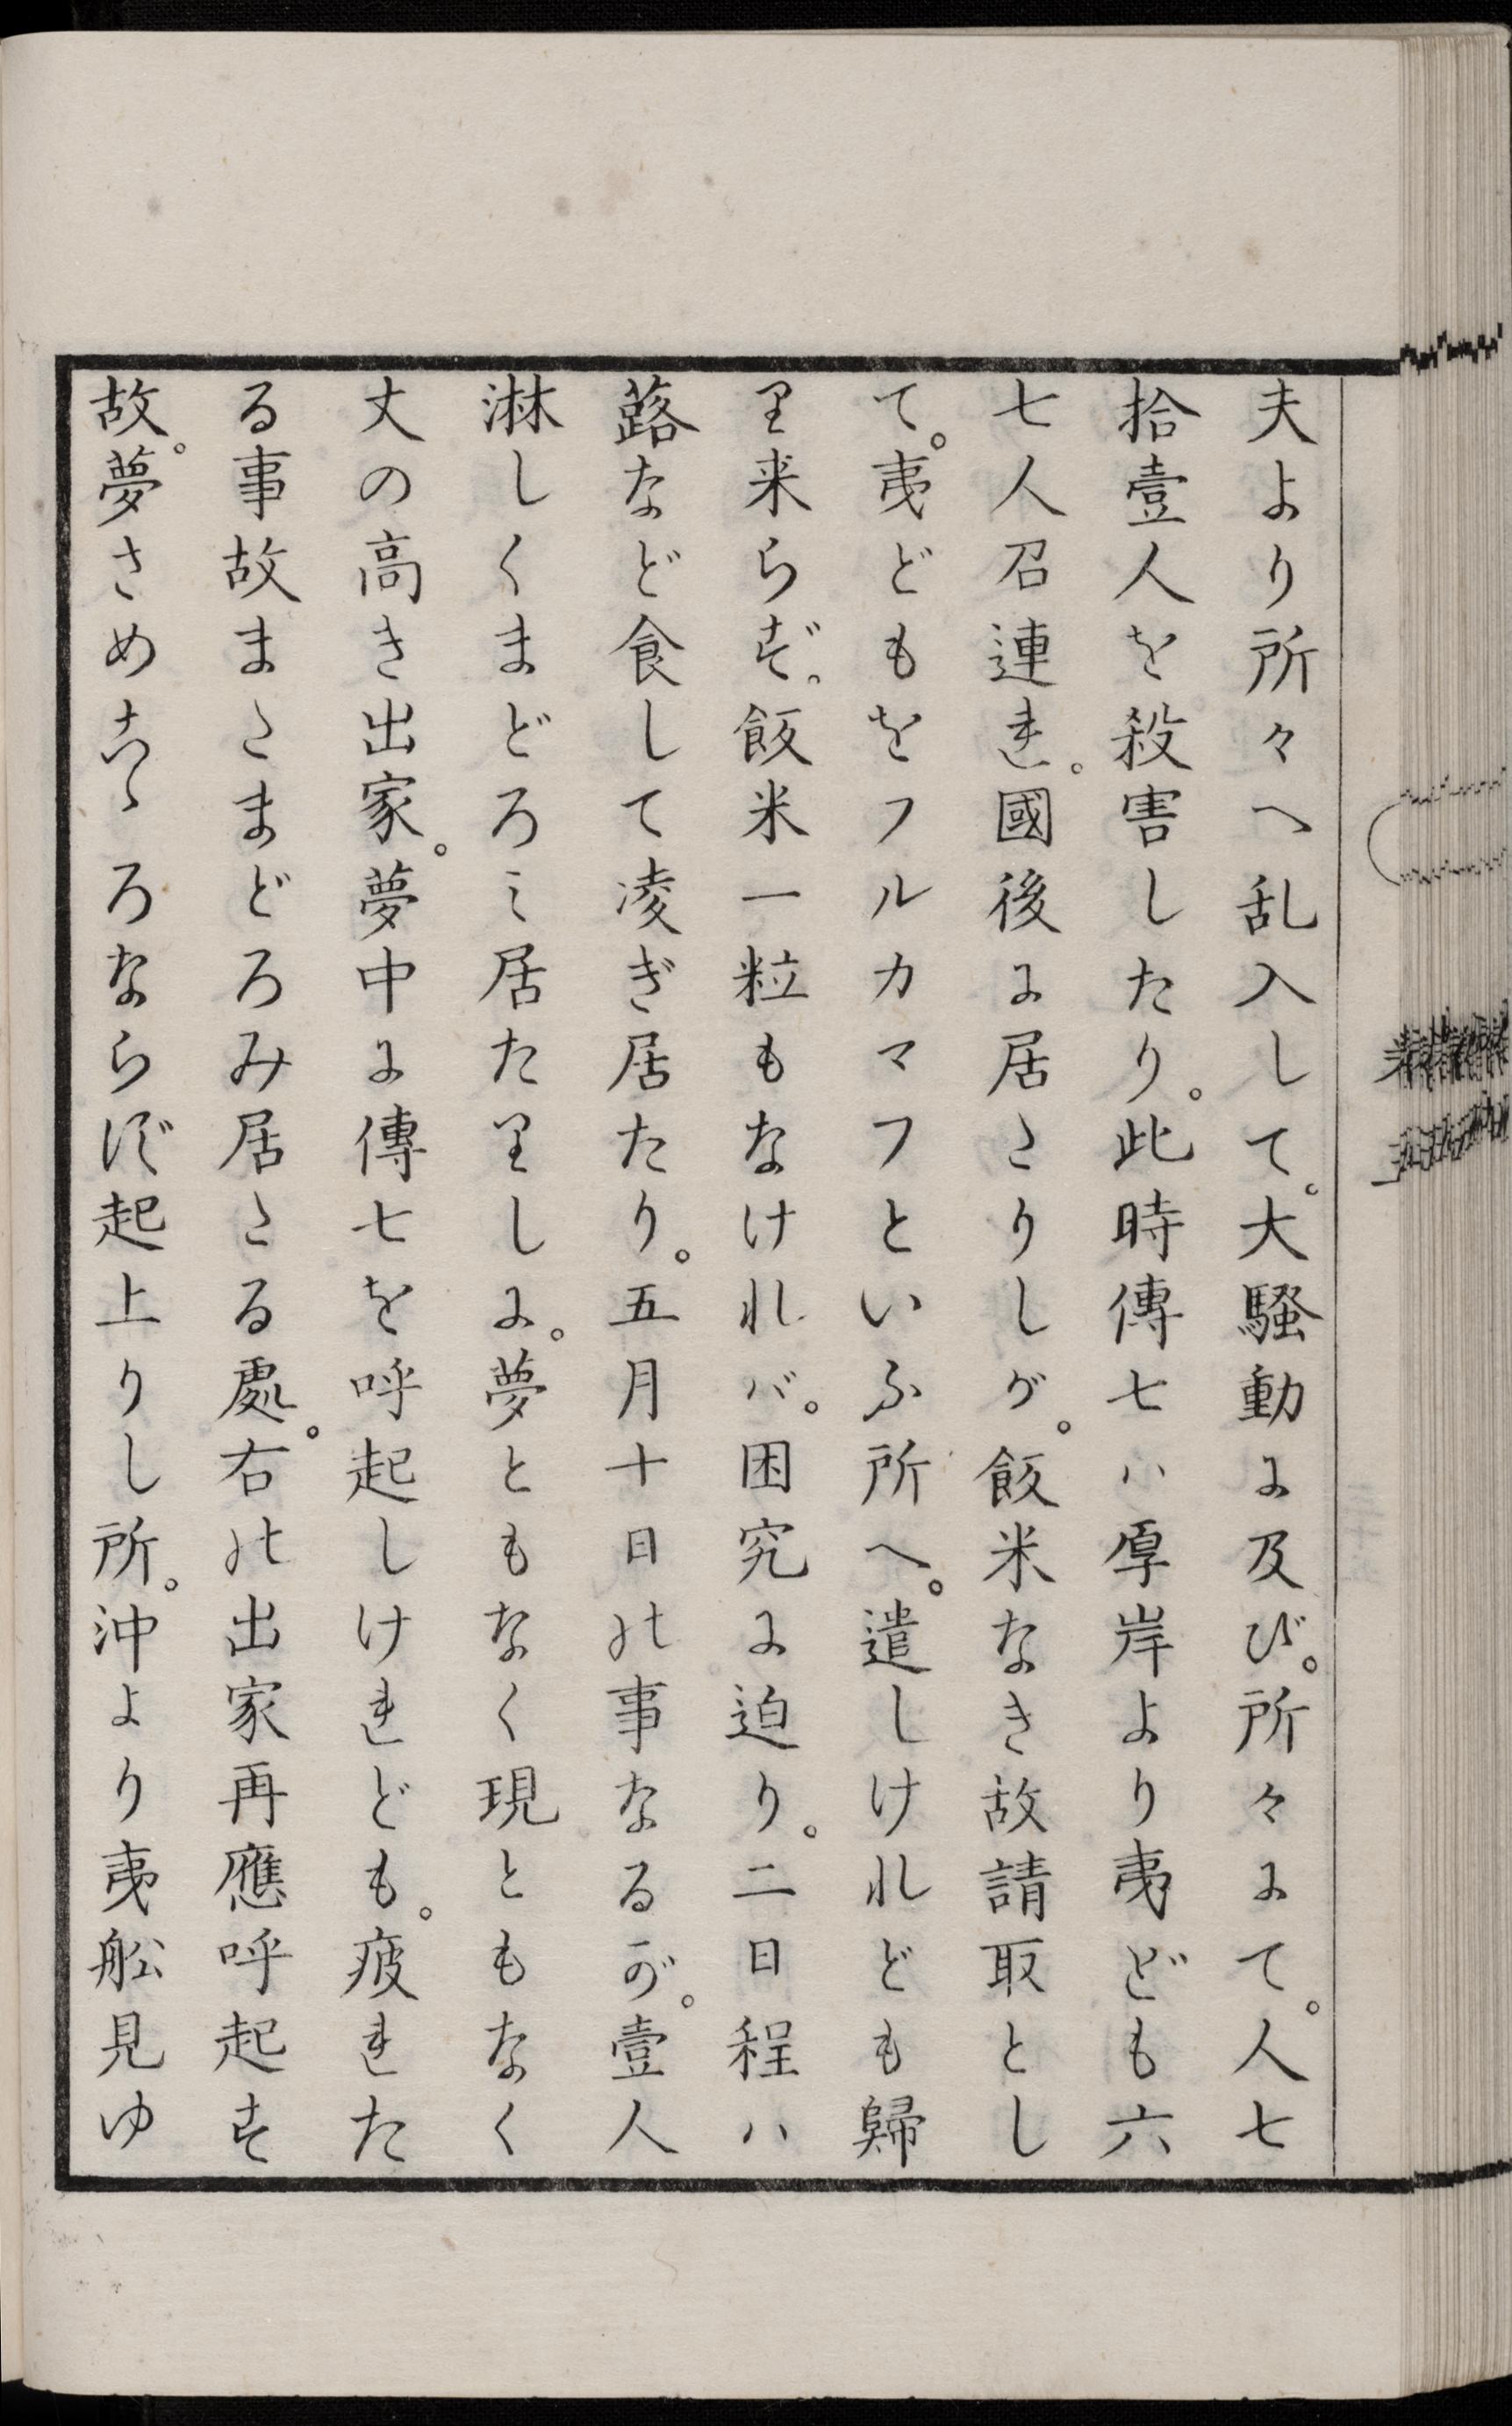 夫より所々へ乱入して。大騒動に及び。所々にて。人七
拾壹人を殺害したり。此時傳七ハ厚岸より夷ども六
七人召連れ。國後に居たりしが。飯米なき故請取とし
て。夷どもをフルカマフといふ所へ。遣しけれども歸
り来らず。飯米一粒もなけれバ。困究に迫り。二日程ハ
蕗など食して凌ぎ居たり。五月十日の事なるが。壹人
淋しくまどろミ居たりしに。夢ともなく現ともなく
丈の高き出家。夢中に傳七を呼起しけれども。疲れた
る事故まだまどろみ居たる處。右の出家再應呼起す
故。夢さめこゝろならず起上りし所。沖より夷舩見ゆ